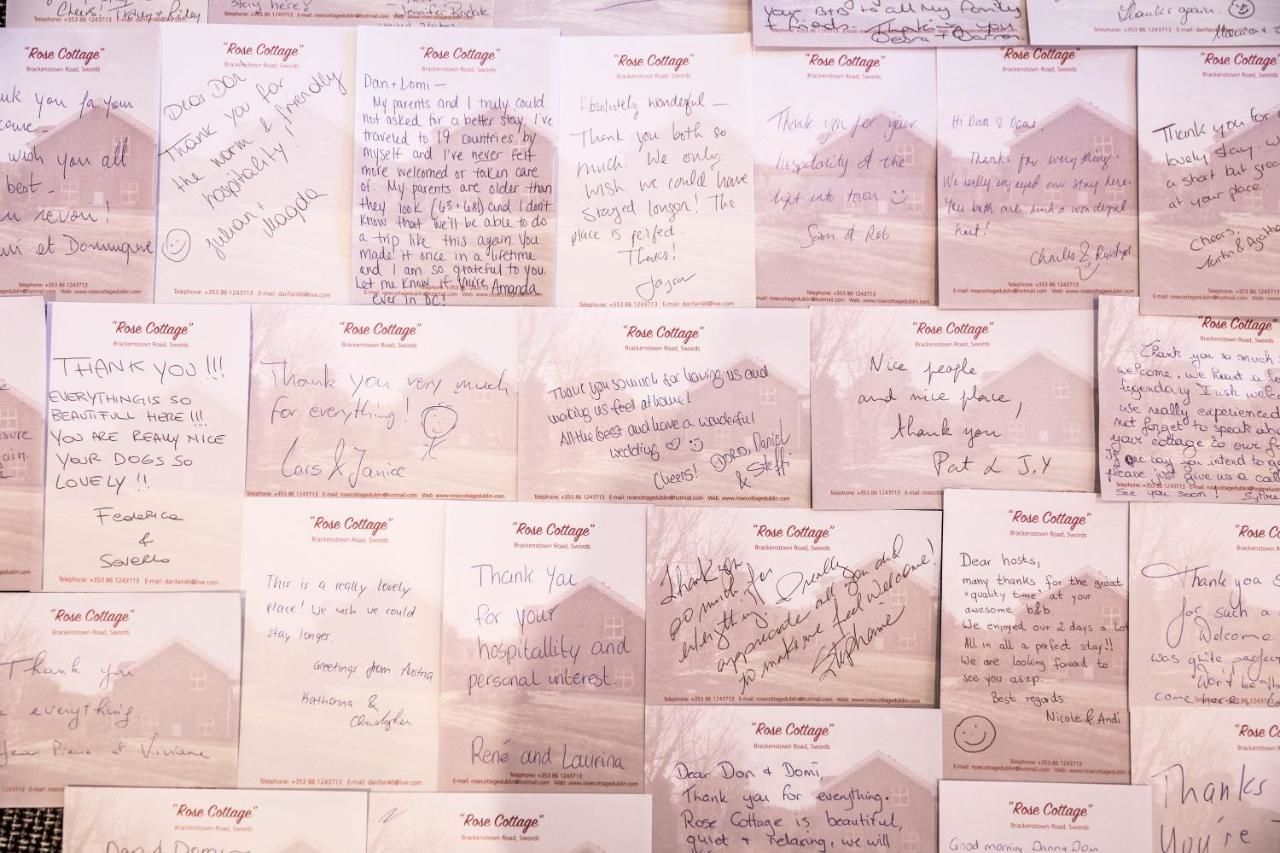 Cheers!
stay here!
your B+B to all my family
& friends. Thank you
Debra + Darren
Thanks again.
"Rose Cottage"
Brackenstown Road, Swords
you for your
wish you all
best -
revoir!
et Dominique
"Rose Cottage"
Brackenstown Road, Swords
Dear Dan
Thank you for
the warm & friendly
hospitality!
Julian &
Magda
Telephone: +353 86 1243713 E-mail: danfan46@live.com
Dan + Lomi -
My parents and I truly could
not asked for a better stay. I've
traveled to 19 countries by
myself and I've never felt
more welcomed or taken care
of. My parents are older than
they look (63 + 68!) and I don't
know that we'll be able to do
a trip like this again. You
made it once in a lifetime
and I am so grateful to you.
Let me know if you're
ever in DC. Amanda
"Rose Cottage"
Brackenstown Road, Swords
Absolutely wonderful -
Thank you both so
much. We only
wish we could have
stayed longer! The
place is perfect.
Thanks!
Jayson
Telephone: +353 86 1243713 E-mail: danfan46@live.com
"Rose Cottage"
Brackenstown Road, Swords
Thank you for your
hospitality & the
lift into town
& Rob
"Rose Cottage"
Brackenstown Road, Swords
Hi Dan & Domi,
Thanks for everything.
We really enjoyed our stay here.
You both are such a wonderful
host!
Charles &
"Rose Cottage"
Brackenstown Road, Swords
Thank you for
lovely stay.
a short but great
at your place.
Cheers,
"Rose Cottage"
Brackenstown Road, Swords
THANK YOU!!!
EVERYTHING IS SO
BEAUTIFULL HERE!!!
YOU ARE REALLY NICE
YOUR DOGS SO
LOVELY!!
Federica
&
Saverio
Telephone: +353 86 1243713 E-mail: danfan46@live.com
"Rose Cottage"
Brackenstown Road, Swords
Thank you very much
for everything!
Lars & Janice
Telephone: +353 86 1243713 E-mail: rosecottagedublin@hotmail.com Web: www.rosecottagedublin.com
"Rose Cottage"
Brackenstown Road, Swords
Thank you so much for having us and
making us feel at home!
All the best and have a wonderful
wedding
Cheers! Daniel
& Steffi
Telephone: +353 86 1243713 E-mail: rosecottagedublin@hotmail.com Web: www.rosecottagedublin.com
"Rose Cottage"
Brackenstown Road, Swords
Nice people
and nice place,
thank you
Pat & J.Y
Telephone: +353 86 1243713 E-mail: rosecottagedublin@hotmail.com
"Rose Cottage"
Brackenstown Road, Swords
Thank you so much
welcome, we heart a
legendary Irish
we really experienced
not forget to speak
your cottage to our
you intend to
please just give us a call
See you soon!
"Rose Cottage"
Brackenstown Road, Swords
Thank you
everything
Jean Pierre et Viviane
"Rose Cottage"
Brackenstown Road, Swords
This is a really lovely
place! We wish we could
stay longer.
Greetings from Austria
Katharina &
Christopher
Telephone: +353 86 1243713 E-mail: danfan46@live.com
"Rose Cottage"
Brackenstown Road, Swords
Thank You
for your
hospitallity and
personal interest.
René and Laurina
Telephone: +353 86 1243713
E-mail: rosecottagedublin@hotmail.com Web: www.rosecottagedublin.com
"Rose Cottage"
Brackenstown Road, Swords
Thank you
so much for
everything. I really
appreciate all you did
to make me feel welcome!
Stephanie
Telephone: +353 86 1243713 E-mail: rosecottagedublin@hotmail.com Web: www.rosecottagedublin.com
"Rose Cottage"
Brackenstown Road, Swords
Dear hosts,
many thanks for the great
"quality time" at your
awesome b&b.
We enjoyed our 2 days a lot
All in all a perfect stay!!
We are looking forward to
see you asap.
Best regards
Nicole & Andi
"Rose Co
Brackenstown Road, S
Thank you
for such a
Welcome
was quite perfect
Won't be
come
"Rose Cottage"
Brackenstown Road, Swords
Dear Dan & Domi,
Thank you for everything.
Rose Cottage is beautiful,
quiet & relaxing, we will
"Rose Co
Brackenstown Road, S
Thanks
You're
"Rose Cottage"
Brackenstown Road, Swords
"Rose Cottage"
Brackenstown Road, Swords
"Rose Cottage"
Brackenstown Road, Swords
Good morning